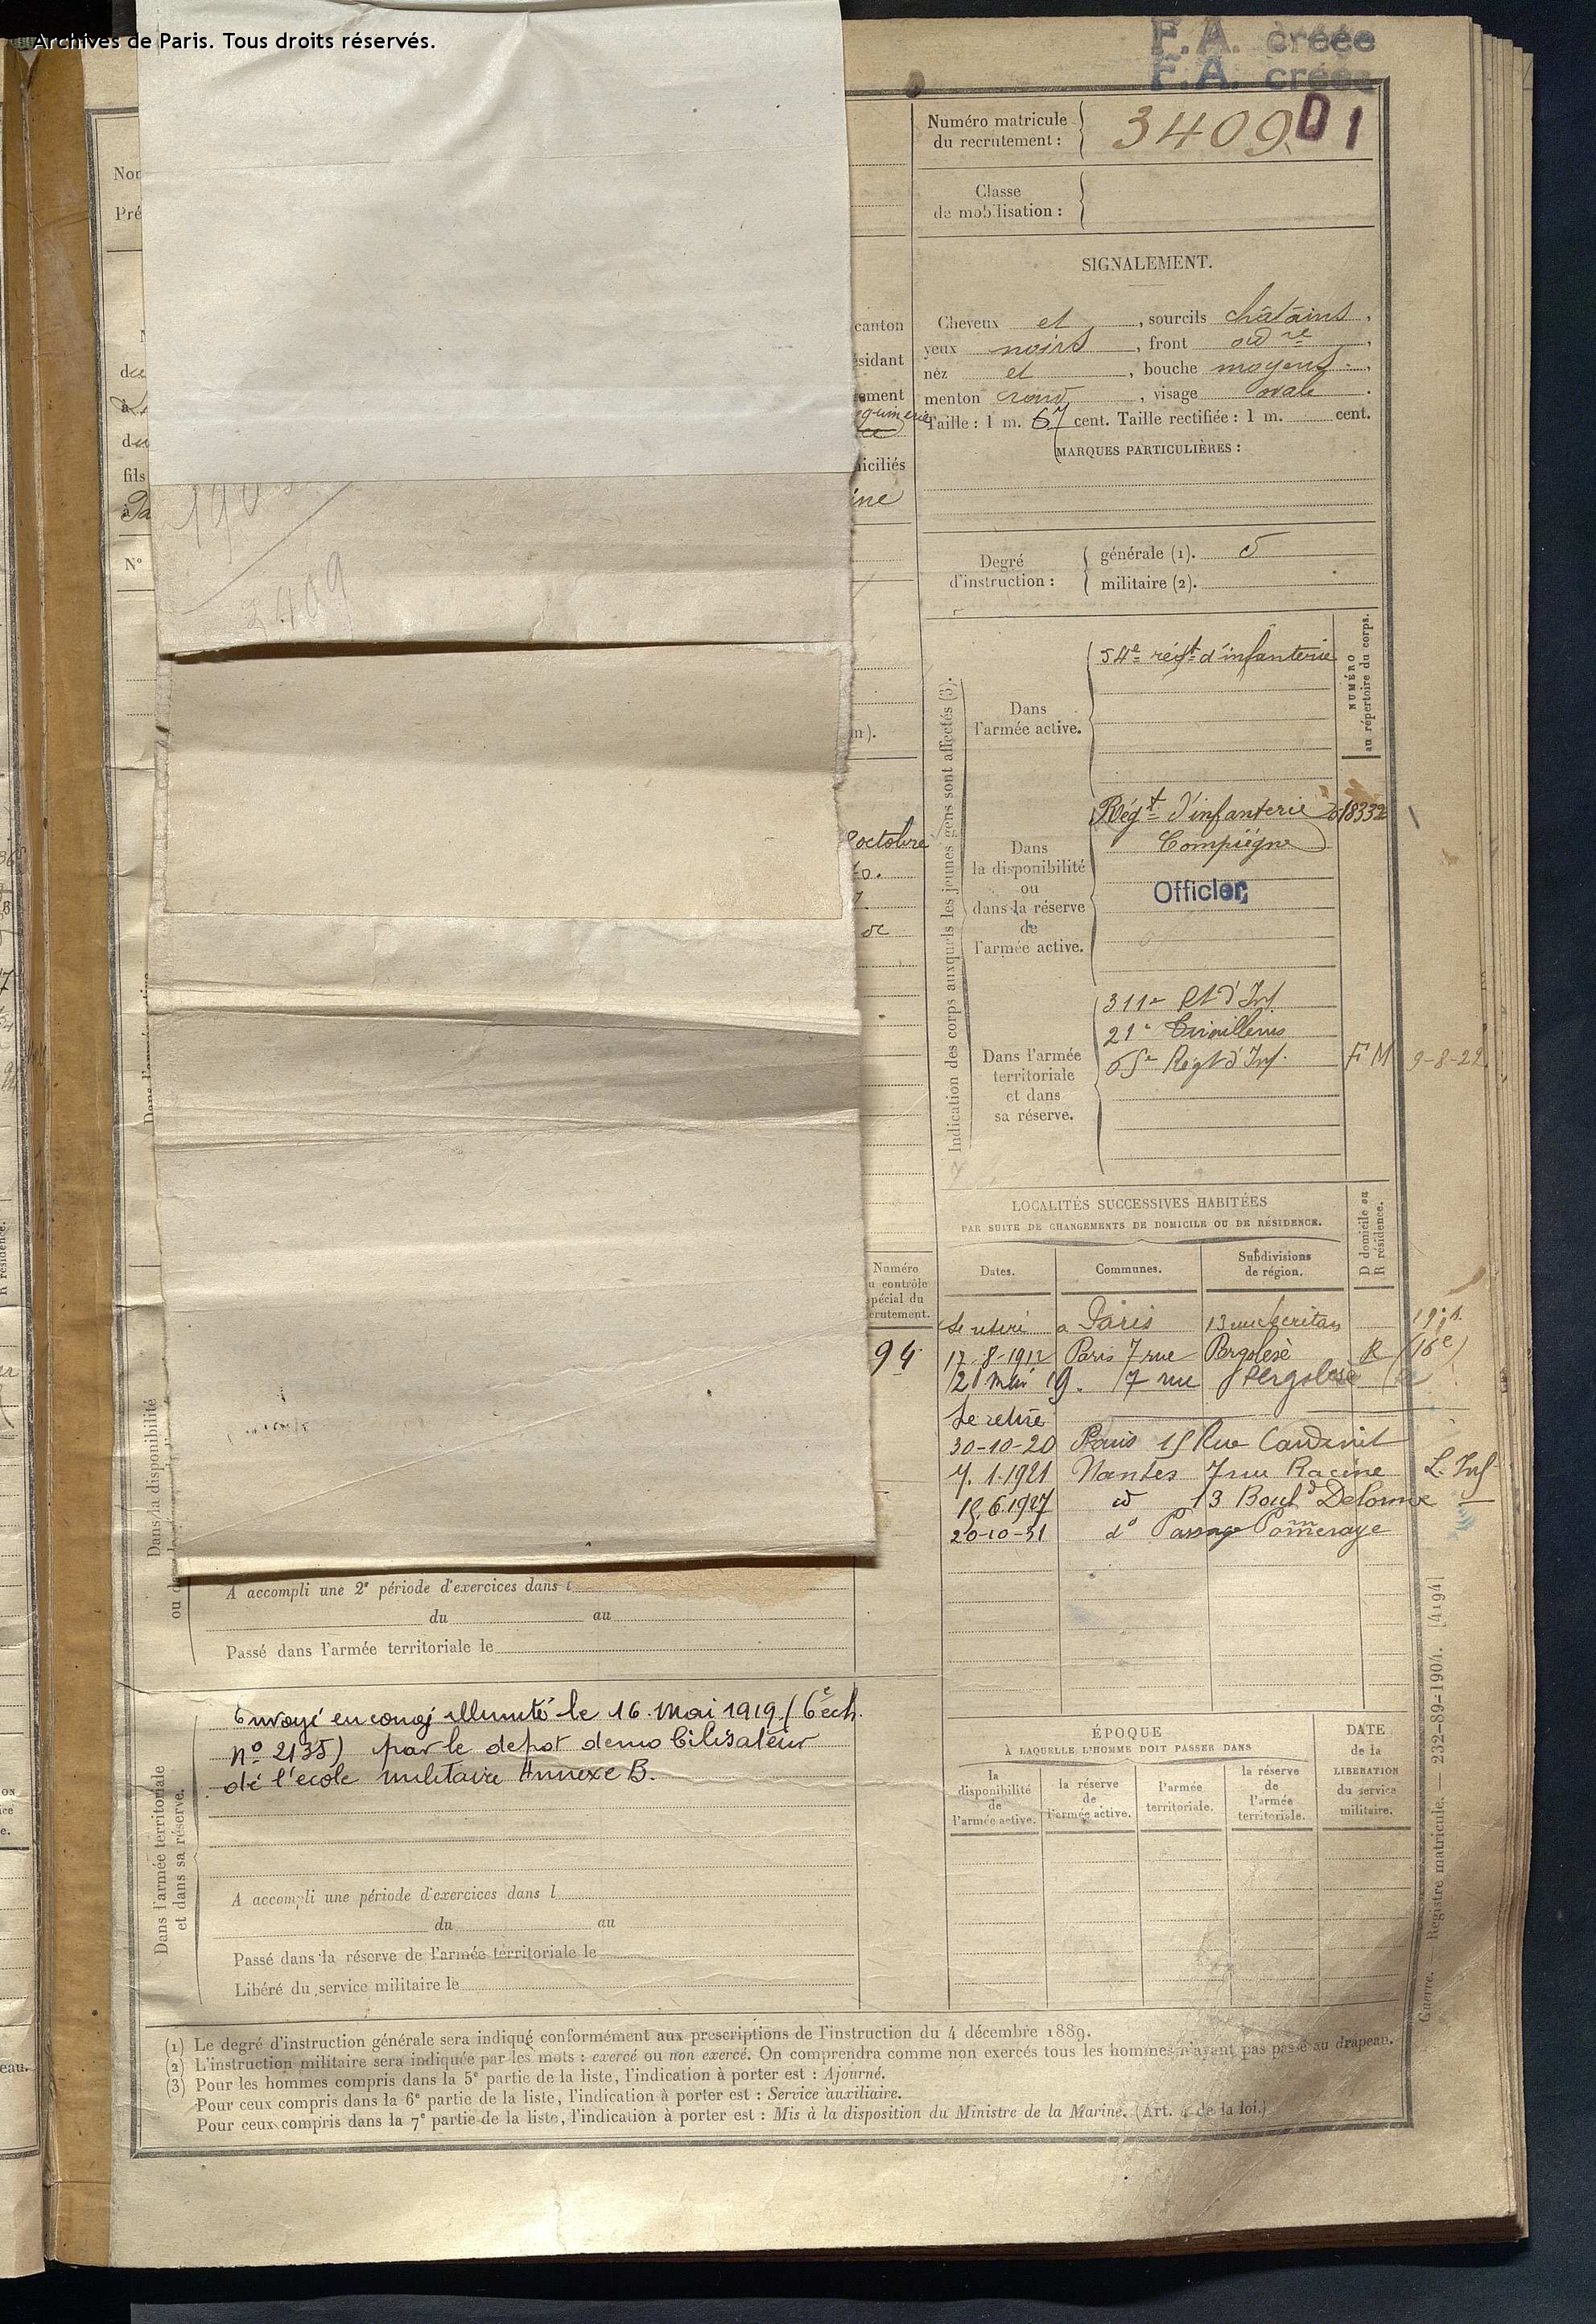 Archives de Paris. Tous droits réservés.
F.A. créée
F.A. créée
Numéro matricule
du recrutement :
3409 D1
Classe
de mobilisation :
SIGNALEMENT.
Cheveux et, sourcils châtains,
yeux noirs, front ord re,
nez et, bouche moyens,
menton rond, visage ovale.
Taille : 1 m. 67 cent. Taille rectifiée : 1 m. cent.
MARQUES PARTICULIÈRES :
canton
ésidant
ement
niciliés
ine
fils
N°
3409
Degré
d'instruction :
générale (1). 5
militaire (2).
Indication des corps auxquels les jeunes gens sont affectés (3).
NUMÉRO
au répertoire du corps.
Dans
l'armée active.
54e régt d'infanterie
octobre
Dans
la disponibilité
ou
dans la réserve
de
l'armée active.
Régt d'infanterie
Compiègne
Officier
Dans l'armée
territoriale
et dans
sa réserve.
311e Rt d'Inf
21e Tirailleurs
65e Régt d'Inf. F M 9-8-22
LOCALITÉS SUCCESSIVES HABITÉES
PAR SUITE DE CHANGEMENTS DE DOMICILE OU DE RÉSIDENCE.
Dates.
Communes.
Subdivisions
de région.
D domicile ou
R résidence.
Numéro
u contrôle
pécial du
crutement.
94
Se retire a Paris 13 rue
17-8-1912 Paris 7 rue Pergolèse R (16e)
21 Mai 19. 7 rue Pergolèse
Se retire
30-10-20 Paris 15 Rue Cardinet
4.1.1921 Nantes 7 rue Racine L. Inf
15.6.1927 id 13 Bould Delorme
20-10-31 do Passage Pommeraye
Dans la disponibilité
A accompli une 2e période d'exercices dans l
du au
Passé dans l'armée territoriale le
Dans l'armée territoriale
et dans sa réserve.
Envoyé en congé illimité le 16 Mai 1919 (6e éch.
No 2135) par le depot demobilisateur
de l'école militaire Annexe B.
A accompli une période d'exercices dans l
du au
Passé dans la réserve de l'armée territoriale le
Libéré du service militaire le
ÉPOQUE
À LAQUELLE L'HOMME DOIT PASSER DANS
la
disponibilité
de
l'armée active.
la réserve
de
l'armée active.
l'armée
territoriale.
la réserve
de
l'armée
territoriale.
DATE
de la
LIBÉRATION
du service
militaire.
Guerre. Registre matricule. — 232-89-1904. [4194]
(1) Le degré d'instruction générale sera indiqué conformément aux prescriptions de l'instruction du 4 décembre 1889.
(2) L'instruction militaire sera indiquée par les mots : exercé ou non exercé. On comprendra comme non exercés tous les hommes n'ayant pas passé au drapeau.
(3) Pour les hommes compris dans la 5e partie de la liste, l'indication à porter est : Ajourné.
Pour ceux compris dans la 6e partie de la liste, l'indication à porter est : Service auxiliaire.
Pour ceux compris dans la 7e partie de la liste, l'indication à porter est : Mis à la disposition du Ministre de la Marine. (Art. 4 de la loi.)